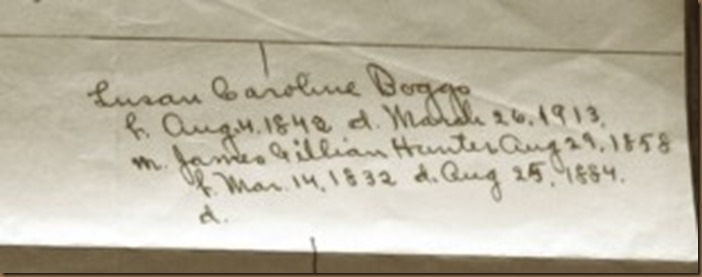 Susan Caroline Boggs
b. Aug 4. 1842 d. March 26, 1913.
m. James Gillian Hunter Aug 29, 1858
b. Mar. 14, 1832 d. Aug 25, 1884.
d.